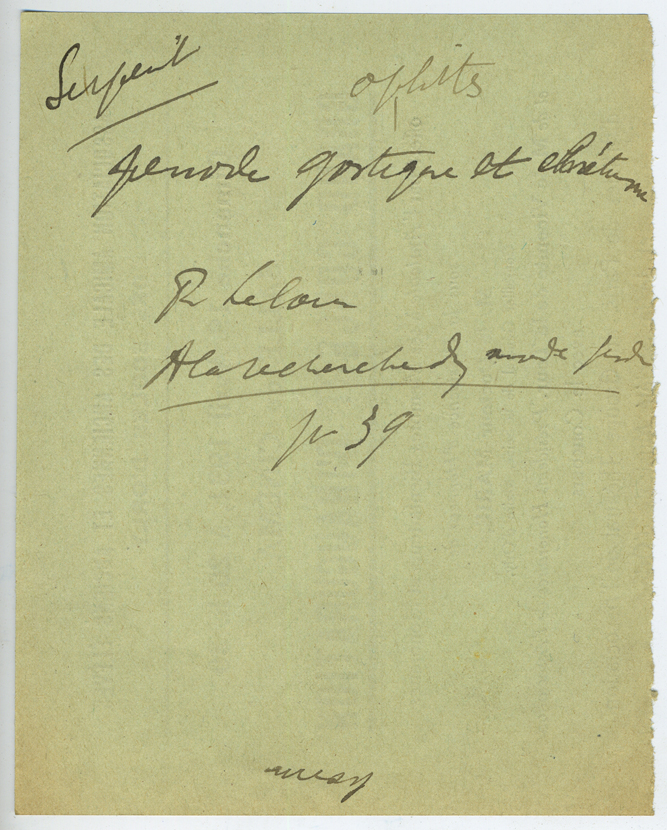 Serpent
ophites
periode gostique et chrétienne
R Lelour
A la recherche du monde perdu
p 39